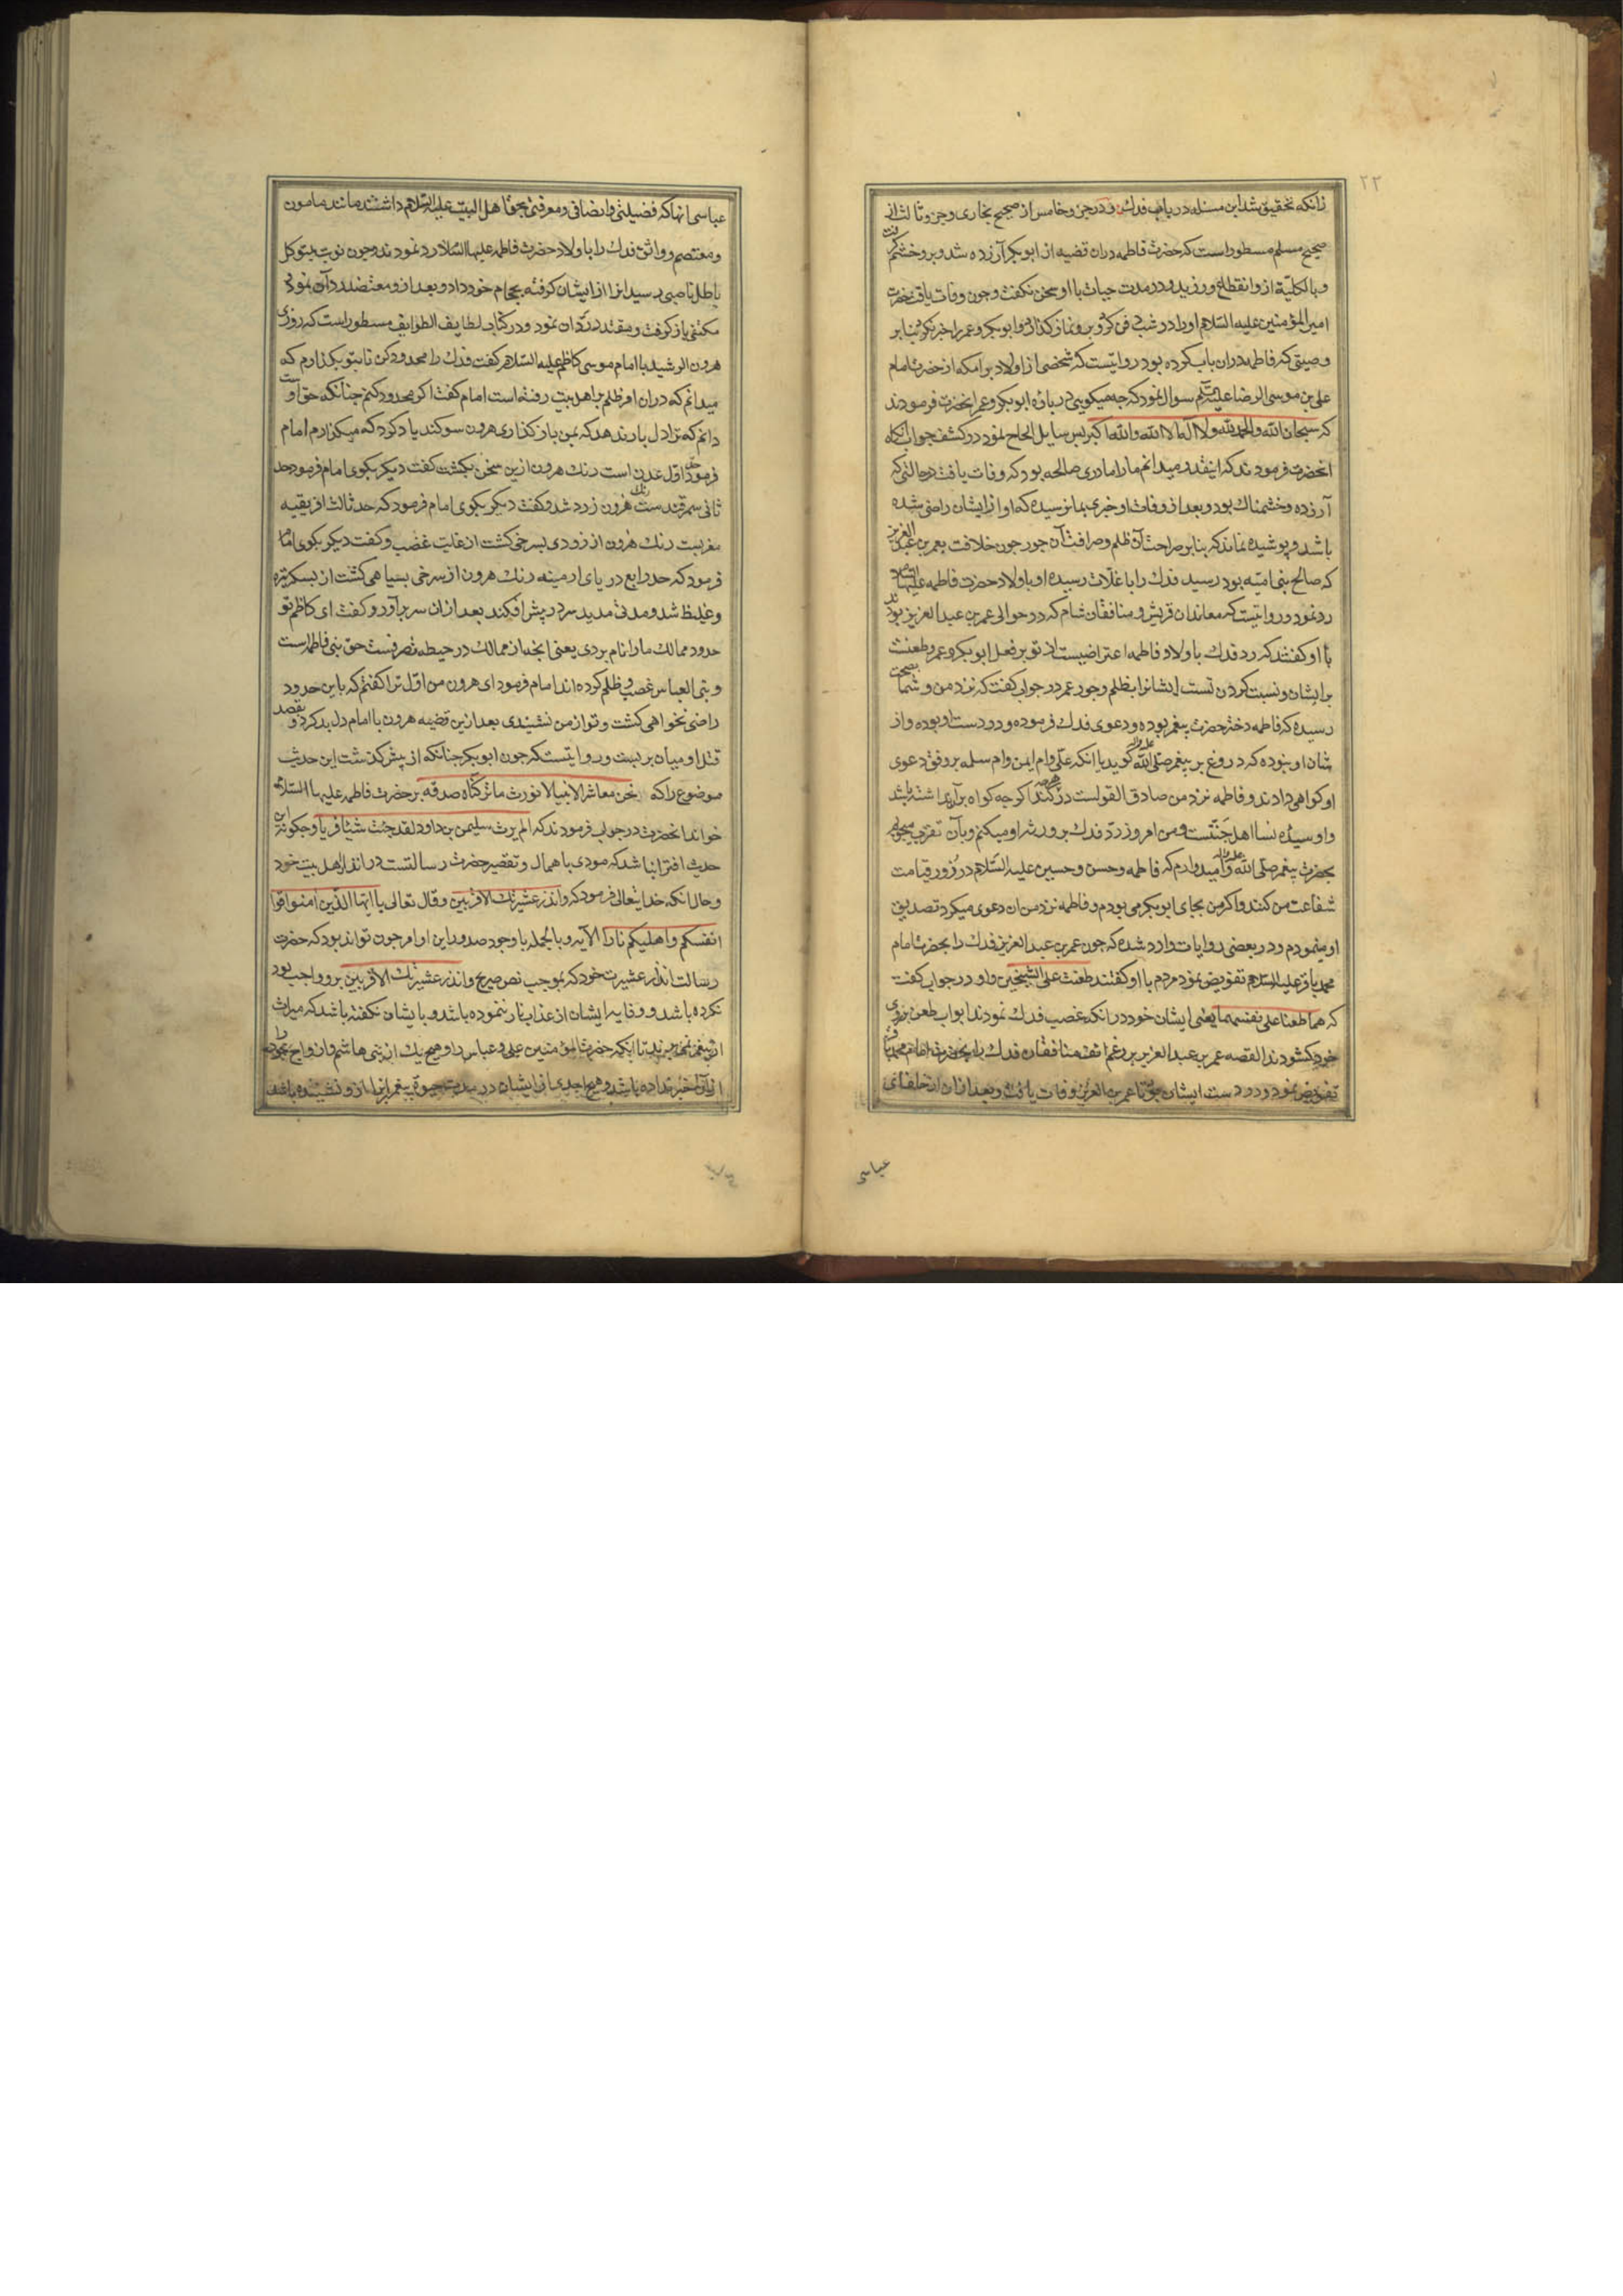 ۲۲
زانکه تحقیق شد این مسئله در باب فدک و در جزو خامس از صحیح بخاری و جزو ثالث از
صحیح مسلم مسطور است که حضرت فاطمه دران قضیه از ابوبکر آزرده شد و برو خشم گرفت
و بالکلیة ازو انقطاع ورزید و در مدت حیات با او سخن نکفت و چون وفات یافت حضرت
امیر المؤمنین علیه السلام او را در شب دفن کرد و برو نماز کذارد و ابوبکر و عمر را خبر نکرد بنابر
وصیتی که فاطمه دران باب کرده بود روایتست که شخصی از اولاد برامکه از حضرت امام
علی بن موسی الرضا علیه السلم سوال نمود که چه میکویی در باره ابوبکر و عمر انحضرت فرمودند
که سبحان الله والحمدلله ولا اله الا الله والله اکبر پس سایل الحاح نمود در کشف جواب آنکاه
انحضرت فرمودند که اینقدر میدانم ما را مادری صالحه بود که وفات یافت در حالتی که
آزرده و خشمناک بود و بعد از وفات او خبری بما نرسیده که او از ایشان راضی شده
باشد و پوشیده نماند که بنابر صراحت آن ظلم و صرافت آن جور چون خلافت بعمر بن عبد العزیز
که صالح بنی امیه بود رسید فدک را با غلات رسیده او باولاد حضرت فاطمه علیها السلام
رد نمود و روایتست که معاندان قریش و منافقان شام که در حوالی عمر بن عبد العزیز بودند
با او کفتند که رد فدک باولاد فاطمه اعتراضیست از تو بر فعل ابوبکر و عمر و طعنست
بر ایشان و نسبت کردن تست ایشانرا بظلم و جور عمر در جواب کفت که نزد من و شما بصحت
رسیده که فاطمه دختر حضرت پیغمبر بوده و دعوی فدک فرموده و در دست او بوده و از
شان او نبوده که دروغ بر پیغمبر صلی الله علیه واله کوید با انکه علی و ام ایمن و ام سلمه بر وفق دعوی
او کواهی دادند و فاطمه نزد من صادق القولست در هرچه دعوی کند اکرچه کواه بر آن نداشته باشد
و او سیده نسا اهل جنتست و من امروز رد فدک بر ورثه او میکنم و بآن تقرب میجویم
بحضرت پیغمبر صلی الله علیه واله و امیدوارم که فاطمه و حسن و حسین علیهم السلام در روز قیامت
شفاعت من کنند و اکر من بجای ابوبکر می بودم و فاطمه نزد من ان دعوی میکرد تصدیق
او مینمودم و در بعضی روایات وارد شده که چون عمر بن عبد العزیز فدک را بحضرت امام
محمد باقر علیه السلام تفویض نمود مردم با او کفتند طعنت علی الشیخین و او در جواب کفت
که هما طعنا علی نفسهما یعنی ایشان خود در انکه غصب فدک نمودند ابواب طعن بروی
خود کشودند القصه عمر بن عبد العزیز بر رغم انف منافقان فدک را بحضرت امام محمد باقر
تفویض نمود و در دست ایشان بود تا عمر بن العزیز وفات یافت و بعد ازان از خلفای
عباسی
عباسی انها که فضیلتی و انصافی و معرفتی بحق اهل البیت علیهم السلام داشتند مانند مامون
و معتصم و واثق فدک را باولاد حضرت فاطمه علیها السلام رد نمودند و چون نوبت بمتوکل
باطل ناصبی رسید انرا از ایشان کرفته بحجام خود داد و بعد ازو معتضد رد آن نمود
مکتفی باز کرفت و مقتدر رد ان نمود و در کتاب لطایف الطوایف مسطور است که روزی
هرون الرشید با امام موسی کاظم علیه السلام کفت فدک را محدود کن تا بتو بکذارم که
میدانم که دران امر ظلم بر اهل بیت رفته است امام کفت اکر محدود کنم چنانکه حق اوست
دانم که ترا دل بار ندهد که بمن باز کذاری هرون سوکند یاد کرد که میکذارم امام
فرمود حد اول عدن است رنک هرون ازین سخن بکشت کفت دیکر بکوی امام فرمود حد
ثانی سمرقند ست رنک هرون زرد شد و کفت دیکر بکوی امام فرمود که حد ثالث افریقیه
مغربست رنک هرون از زردی بسرخی کشت از غایت غضب و کفت دیکر بکوی امام
فرمود که حد رابع دریای ارمینه رنک هرون از سرخی بسیاهی کشت از بسکه تیره
و غلیظ شد و مدتی مدید سر در پیش افکند بعد ازان سر برآورد و کفت ای کاظم تو
حدود ممالک ما را نام بردی یعنی انچه از ممالک در حیطه تصرفست حق بنی فاطمه است
و بنی العباس غصب و ظلم کرده اند امام فرمود ای هرون من اول ترا کفتم که باین حدود
راضی نخواهی کشت و تو از من نشنیدی بعد ازین قضیه هرون با امام دل بد کرد و بقصد
قتل او میان بر بست و روایتست که چون ابوبکر چنانکه از پیش کذشت این حدیث
موضوع را که نحن معاشر الانبیا لا نورث ما ترکناه صدقه بر حضرت فاطمه علیها السلام
خواند انحضرت در جواب فرمودند که الم یرث سلیمن بن داود لقد جئت شیئا فریا و چکونه این
حدیث افترا نباشد که مودی باهمال و تقصیر حضرت رسالتست در انذار اهل بیت خود
و حال انکه خدایتعالی فرمود که وانذر عشیرتک الاقربین وقال تعالی یا ایها الذین امنوا قوا
انفسکم واهلیکم نارا الآیه و بالجمله با وجود صدور این اوامر چون تواند بود که حضرت
رسالت انذار عشیرت خود که بموجب نص صریح وانذر عشیرتک الاقربین برو واجب بود
نکرده باشد و وقایه ایشان از عذاب نار ننموده باشد و بایشان نکفته باشد که میراث
از پیغمبر نمیبرند تا انکه حضرت امیر المؤمنین علی و عباس را و هیچ یک از بنی هاشم و ازواج
ازان خبر نداده باشد و هیچ احدی از ایشان در مدت حیوة پیغمبر انرا ازو نشنیده باشند